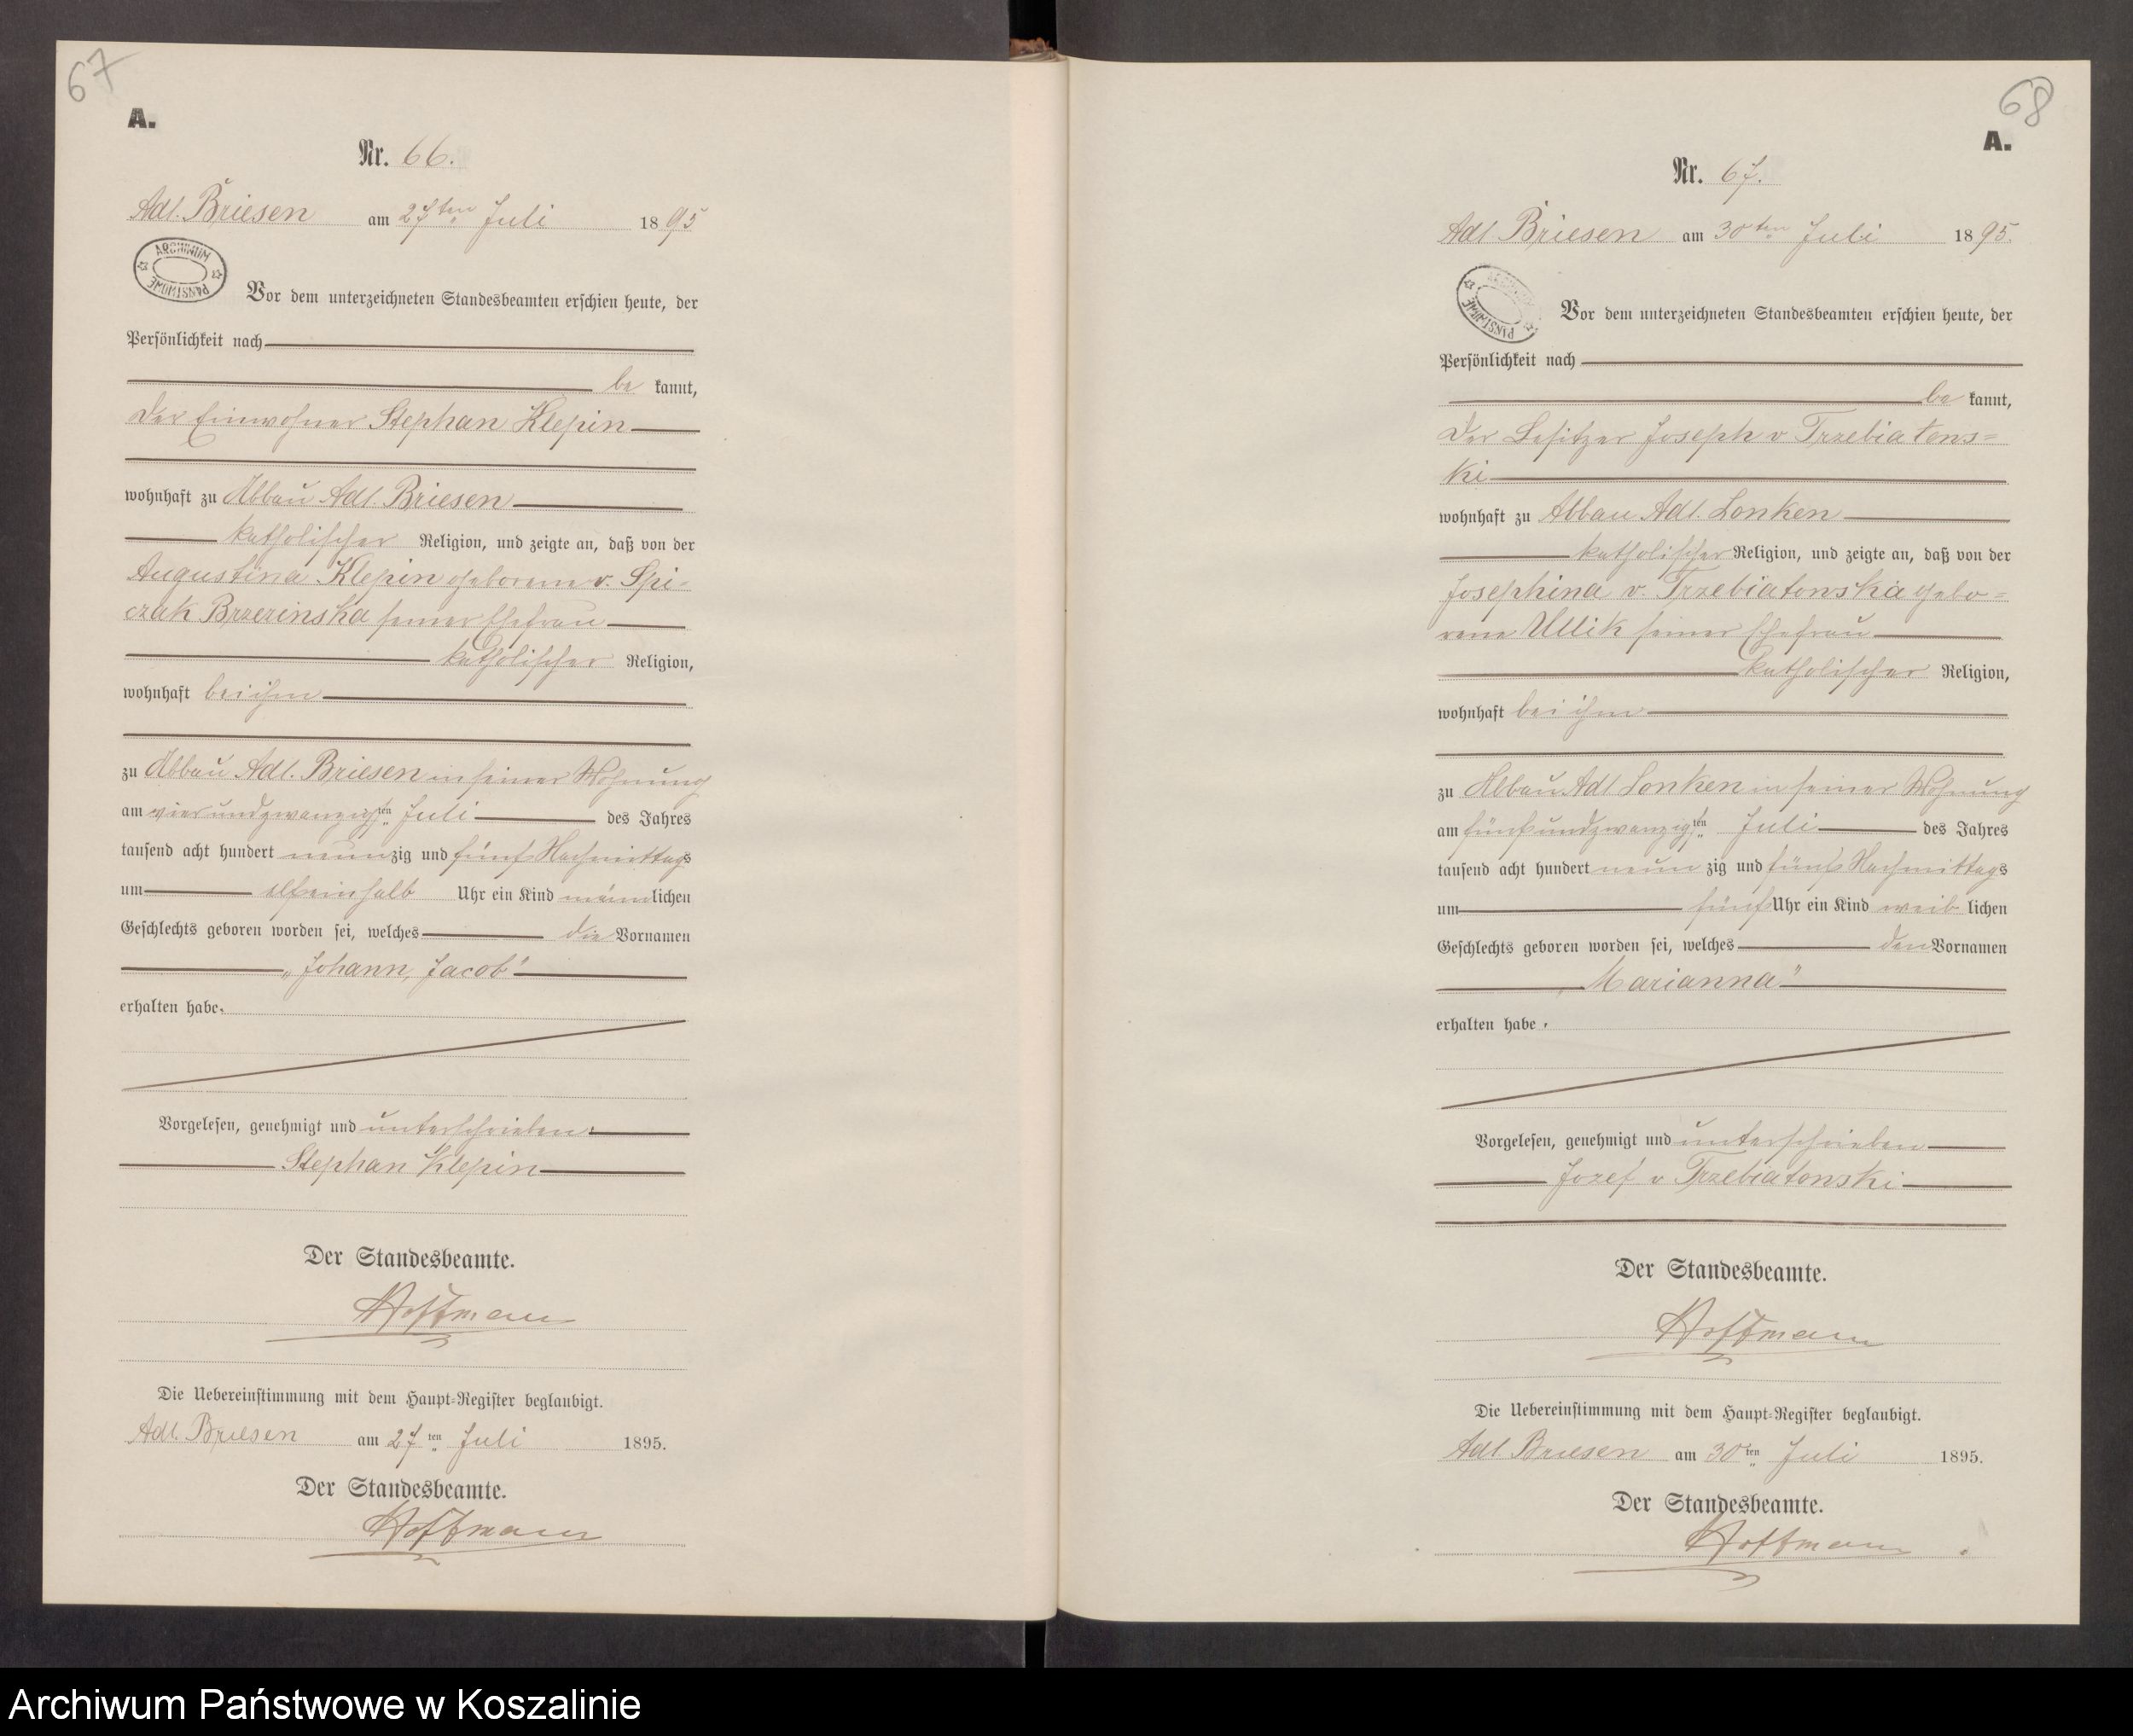 67
A.
Nr. 66.
Adl. Briesen am 27ten Juli 1895
ARCHIWUM PAŃSTWOWE
Vor dem unterzeichneten Standesbeamten erschien heute, der
Persönlichkeit nach
be kannt,
der Einwohner Stephan Klepin
wohnhaft zu Abbau Adl. Briesen
katholischer Religion, und zeigte an, daß von der
Augustina Klepin geborene v. Spi-
czak Brzezinska seiner Ehefrau
katholischer Religion,
wohnhaft bei ihm
zu Abbau Adl. Briesen in seiner Wohnung
am vierundzwanzigsten Juli des Jahres
tausend acht hundert neunzig und fünf Nachmittags
um elfeinhalb Uhr ein Kind männlichen
Geschlechts geboren worden sei, welches die Vornamen
„Johann, Jacob"
erhalten habe.
Vorgelesen, genehmigt und unterschrieben.
Stephan Klepin
Der Standesbeamte.
Hoffmann
Die Uebereinstimmung mit dem Haupt-Register beglaubigt.
Adl. Briesen am 27ten Juli 1895.
Der Standesbeamte.
Hoffmann
68
A.
Nr. 67.
Adl Briesen am 30ten Juli 1895.
ARCHIWUM PAŃSTWOWE
Vor dem unterzeichneten Standesbeamten erschien heute, der
Persönlichkeit nach
be kannt,
der Besitzer Joseph v Trzebiatows-
ki
wohnhaft zu Abbau Adl. Lonken
katholischer Religion, und zeigte an, daß von der
Josephina v. Trzebiatowska gebo-
rene Ullik seiner Ehefrau
katholischer Religion,
wohnhaft bei ihm
zu Abbau Adl Lonken in seiner Wohnung
am fünfundzwanzigsten Juli des Jahres
tausend acht hundert neun zig und fünf Nachmittags
um fünf Uhr ein Kind weib lichen
Geschlechts geboren worden sei, welches den Vornamen
„Marianna"
erhalten habe.
Vorgelesen, genehmigt und unterschrieben
Jozef v Trzebiatowski
Der Standesbeamte.
Hoffmann
Die Uebereinstimmung mit dem Haupt-Register beglaubigt.
Adl. Briesen am 30ten Juli 1895.
Der Standesbeamte.
Hoffmann
Archiwum Państwowe w Koszalinie